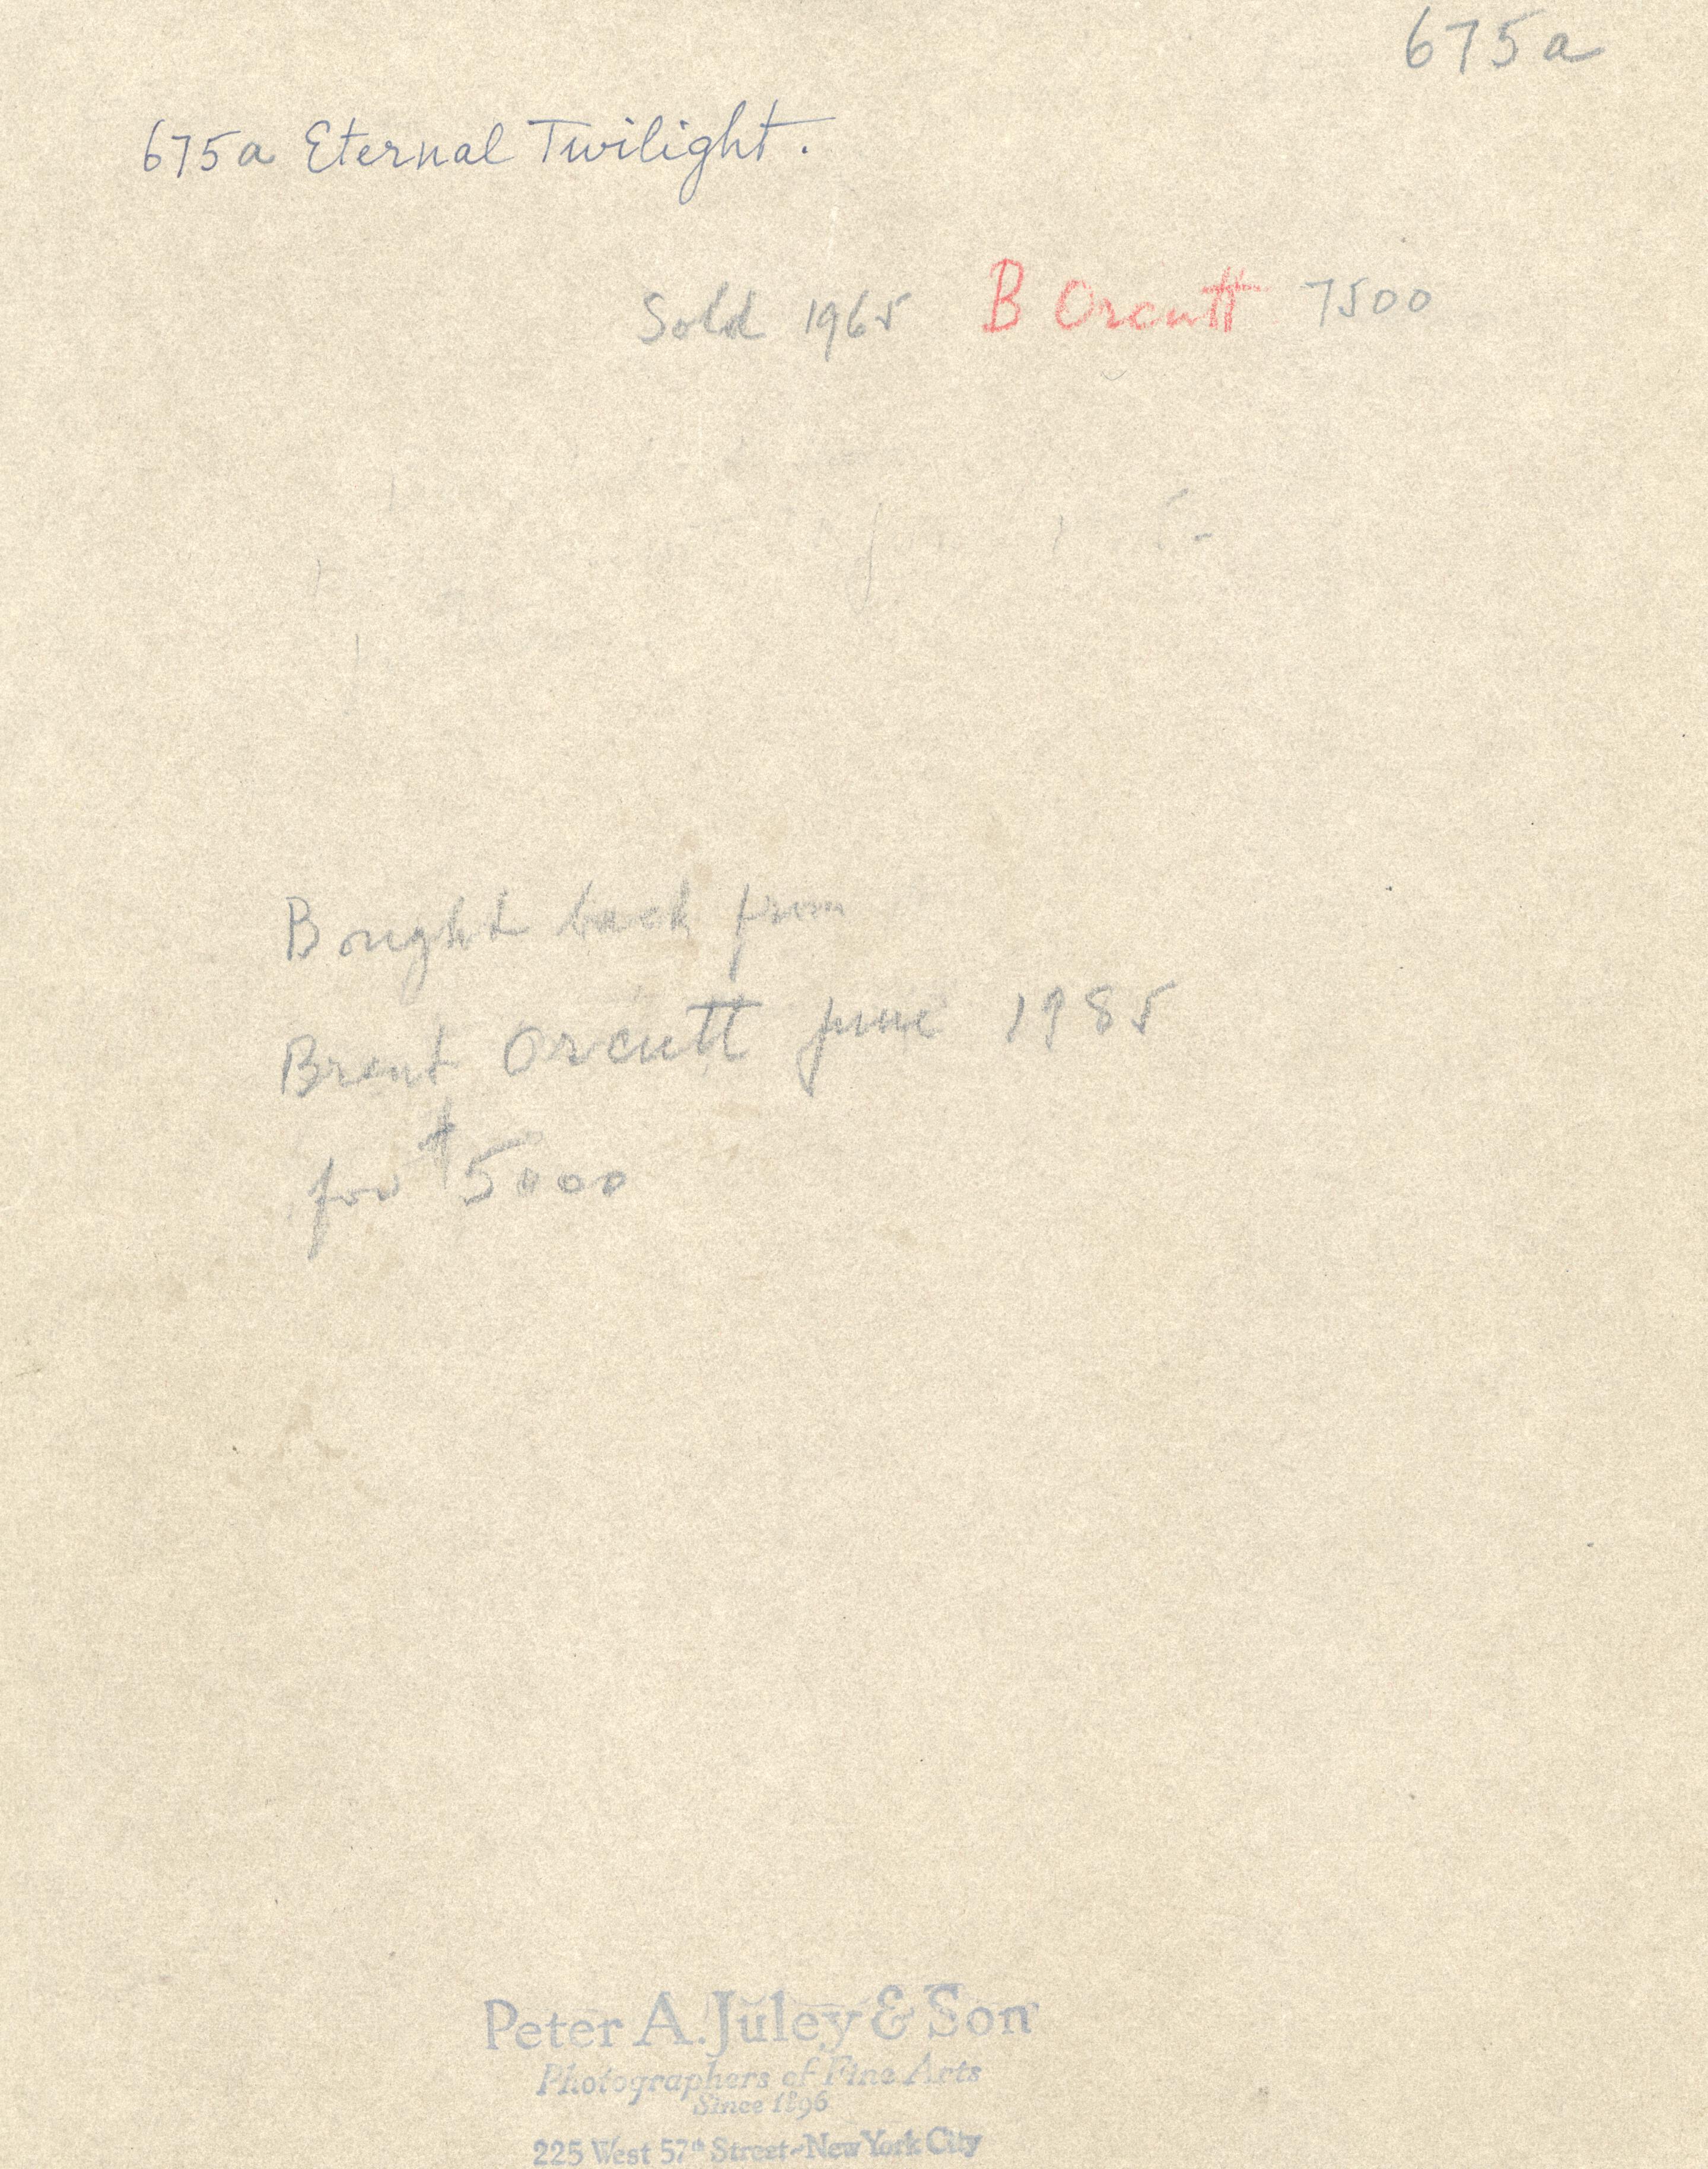 675a
675a Eternal Twilight.
Sold 1965 B Orcutt 7500
Bought back from
Brent Orcutt June 1985
for $5000
Peter A. Juley & Son
Photographers of Fine Arts
Since 1896
225 West 57th Street - New York City